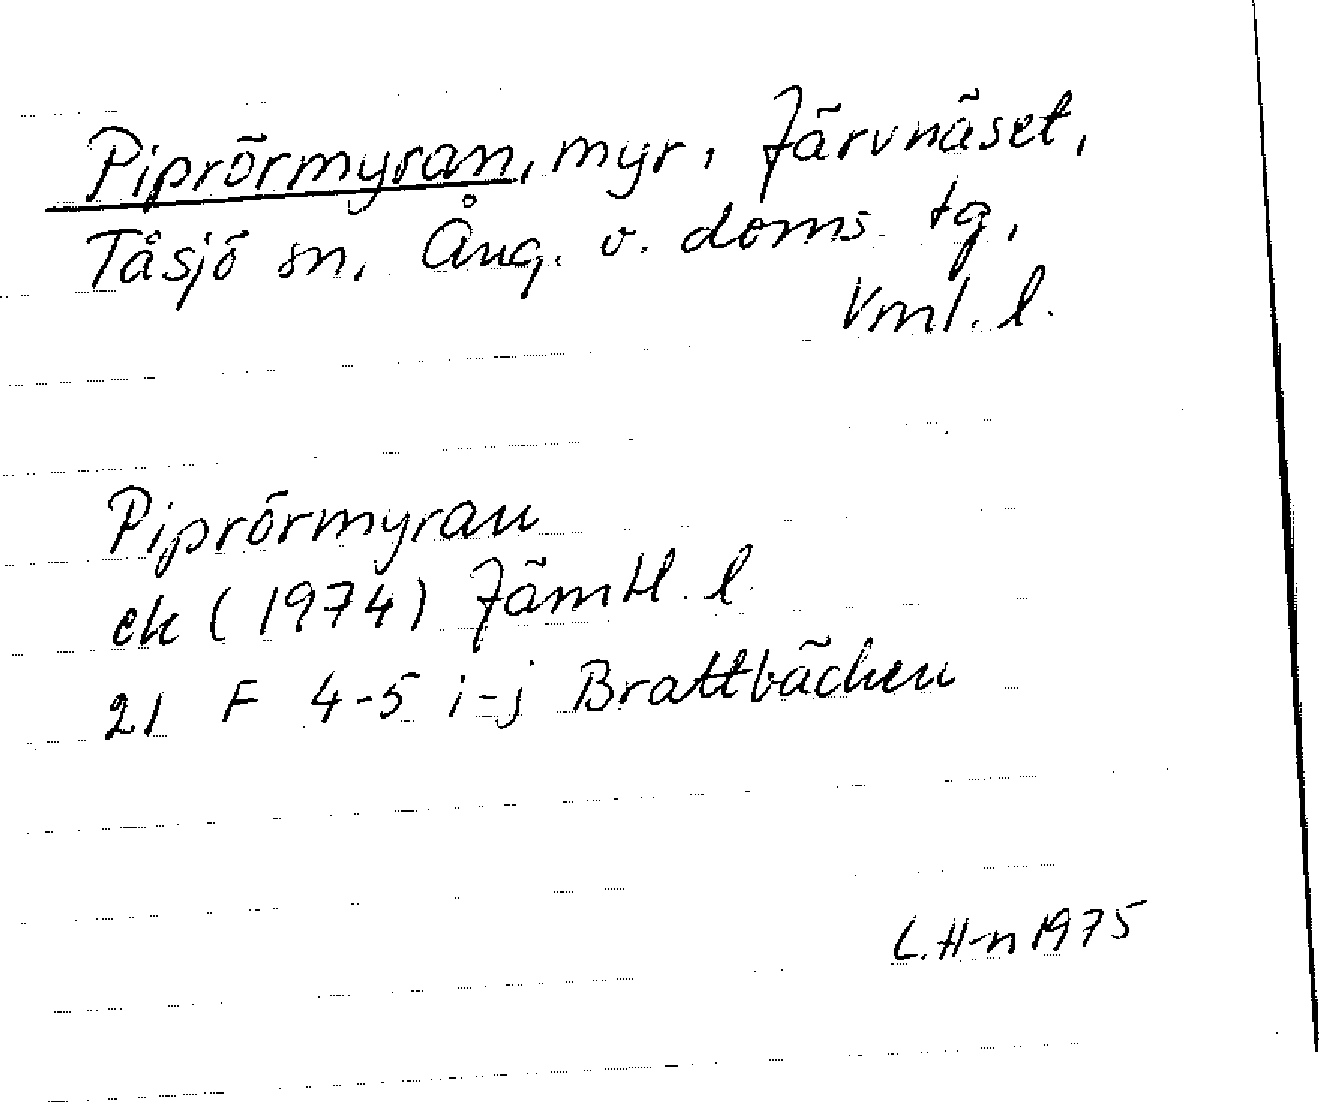 Piprörmyran, myr, Järvnäset,
Tåsjö sn, Ång. v. doms. tg,
Vml. l.
Piprörmyran
ek (1974) Jämtl. l.
21 F 4-5 i-j Brattbäcken
L. H-n 1975